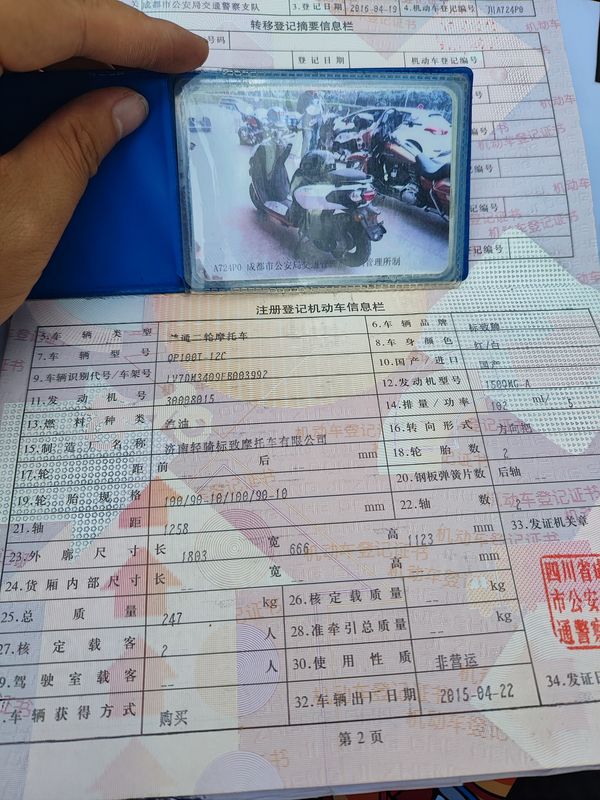 成都市公安局交通警察支队 3.登记日期 2016-04-19 4.机动车登记编号 川A724P0
转移登记摘要信息栏
号码
登记日期 机动车登记编号
A724P0 成都市公安局交 管理所制
注册登记机动车信息栏
5.车辆类型 普通二轮摩托车 6.车辆品牌 标致牌
7.车辆型号 QP100T-12C 8.车身颜色 红/白
9.车辆识别代号/车架号 10.国产/进口 国产
11.发动机号 30008015 12.发动机型号
13.燃料种类 汽油 14.排量/功率 102 ml/
15.制造厂名称 济南轻骑标致摩托车有限公司 16.转向形式 方向把
17.轮距 前 后 mm 18.轮胎数 2
19.轮胎规格 100/90-10/100/90-10 20.钢板弹簧片数 后轴 --
21.轴距 1258 mm 22.轴数 2
23.外廓尺寸 长 1803 宽 666 高 1123 mm 33.发证机关章
24.货厢内部尺寸 长 -- 宽 -- 高 -- mm
四川省成
市公安
通警察
25.总质量 247 kg 26.核定载质量 -- kg
27.核定载客 2 人 28.准牵引总质量 -- kg
9.驾驶室载客 -- 人 30.使用性质 非营运
.车辆获得方式 购买 32.车辆出厂日期 2015-04-22 34.发证日
第2页